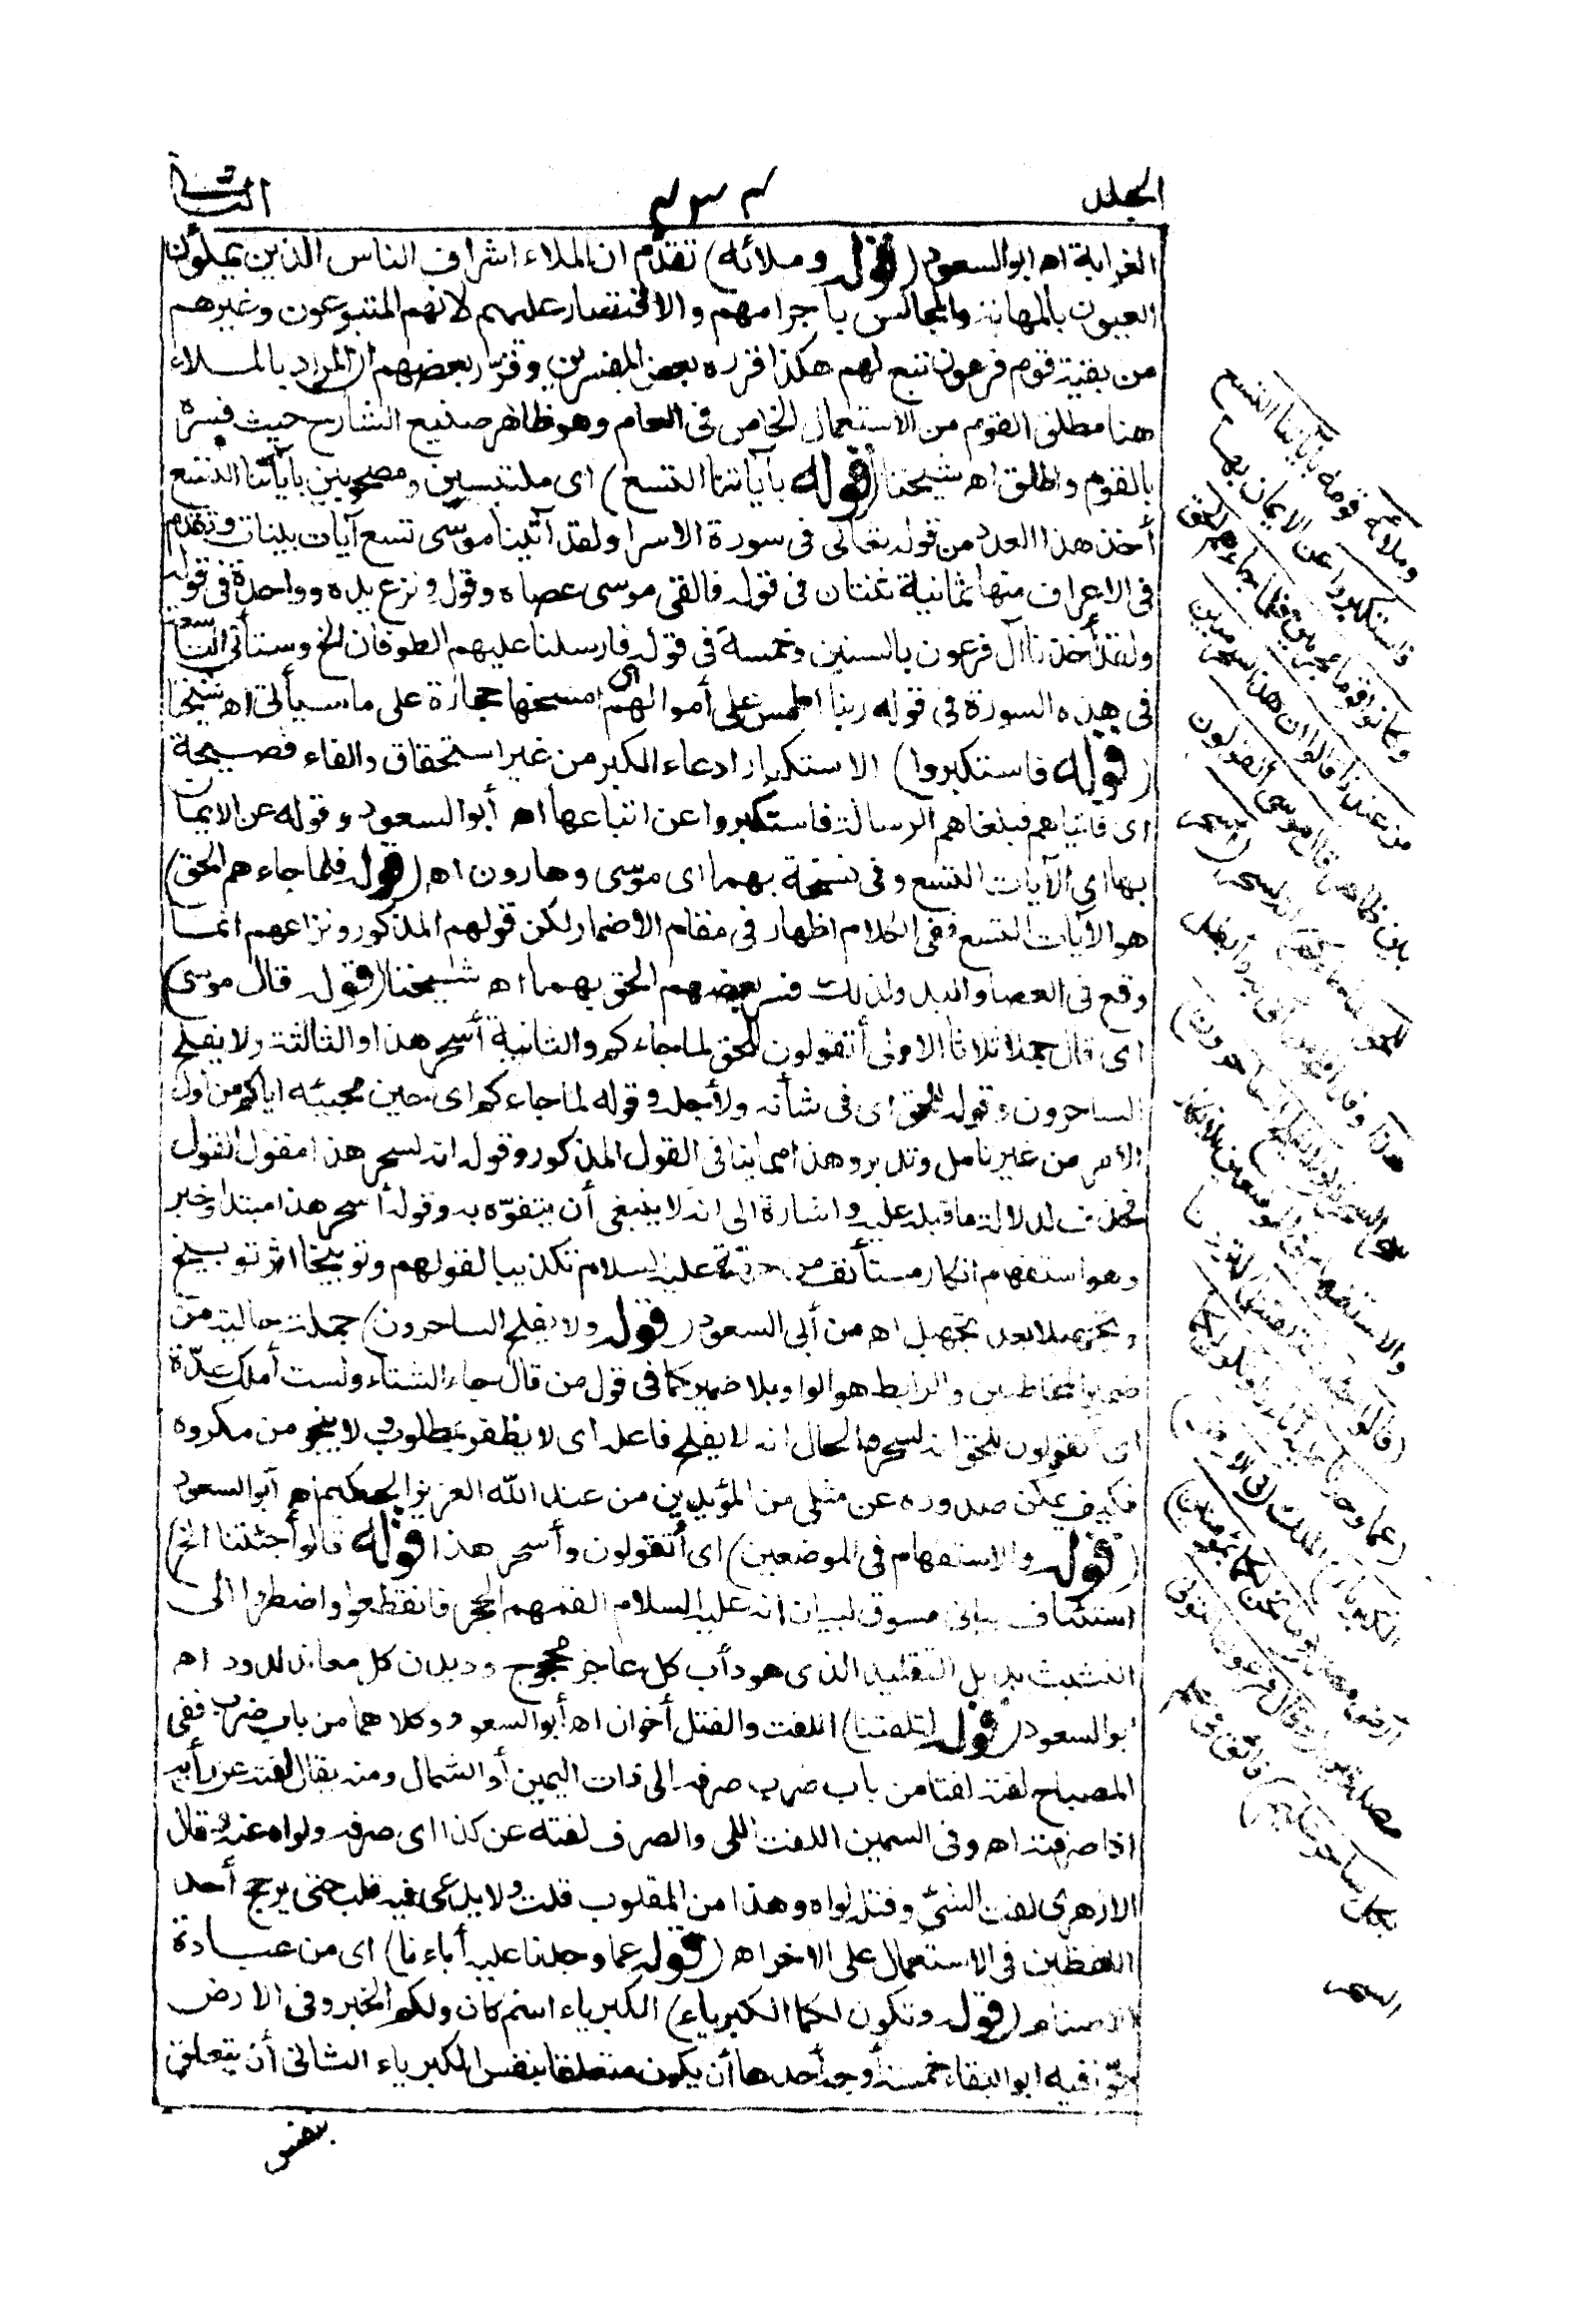 المجلد
الثانى
الغرابة اه ابو السعود (قوله وملائه) تقدم ان الملاء اشراف الناس الذين يملؤن
العيون بالمهابة والمجالس باجرامهم والاقتصار عليهم لانهم المتبوعون وغيرهم
من بقية قوم فرعون تبع لهم هكذا قرره بعض المفسرين وقرر بعضهم ان المراد بالملاء
هنا مطلق القوم من الاستعمال الخاص فى العام وهو ظاهر صنيع الشارح حيث فسره
بالقوم واطلق اه شيخنا (قوله بآياتنا التسع) اى ملتبسين ومصحوبين بآياتنا التسع
أخذ هذا العدد من قوله تعالى فى سورة الاسرا ولقد آتينا موسى تسع آيات بينات وتقدم
فى الاعراف منها ثمانية ثنتان فى قوله فالقى موسى عصاه وقوله ونزع يده وواحدة فى قوله
ولقد أخذنا آل فرعون بالسنين وخمسة فى قوله فارسلنا عليهم الطوفان الخ وستأتى التاسعة
فى هذه السورة فى قوله ربنا اطمس على أموالهم اى امسخها حجارة على ما سيأتى اه شيخنا
(قوله فاستكبروا) الاستكبار ادعاء الكبر من غير استحقاق والفاء فصيحة
اى فاتياهم فبلغاهم الرسالة فاستكبروا عن اتباعها اه أبو السعود وقوله عن الايمان
بها اى الآيات التسع وفى نسخة بهما اى موسى وهارون اه (قوله فلما جاءهم الحق)
هو الآيات التسع ففى الكلام اظهار فى مقام الاضمار لكن قولهم المذكور ونزاعهم انما
وقع فى العصا واليد ولذلك فسر بعضهم الحق بهما اه شيخنا (قوله قال موسى)
اى قال جملا ثلاثا الاولى أتقولون للحق لما جاءكم والثانية أسحر هذا والثالثة ولا يفلح
الساحرون وقوله للحق اى فى شأنه ولأجله وقوله لما جاءكم اى حين مجيئه اياكم من اول
الامر من غير تامل وتدبر وهذا مما ينافى القول المذكور وقوله انه لسحر هذا مقول القول
فحذف لدلالة ما قبله عليه واشارة الى انه لا ينبغى أن يتفوه به وقوله أسحر هذا مبتدا وخبر
وهو استفهام انكار مستأنف من جهته عليه السلام تكذيبا لقولهم وتوبيخا اثر توبيخ
وتجهيلا بعد تجهيل اه من أبى السعود (قوله ولا يفلح الساحرون) جملة حالية من
ضمير المخاطبين والرابط هو الواو بلا ضمير كما فى قول من قال جاء الشتاء ولست أملك عدّة
اى أتقولون للحق انه لسحر والحال انه لا يفلح فاعله اى لا يظفر بمطلوب ولا ينجو من مكروه
فكيف يمكن صدوره عن مثلى من المؤيدين من عند الله العزيز الحكيم اه أبو السعود
(قوله والاستفهام فى الموضعين) اى أتقولون وأسحر هذا (قوله قالوا أجئتنا الخ)
استئناف بيانى مسوق لبيان انه عليه السلام القمهم الحجر فانقطعوا واضطروا الى
التشبث بذيل التقليد الذى هو دأب كل عاجز محجوج وديدن كل معاند لدود اه
ابو السعود (قوله لتلفتنا) اللفت والفتل أخوان اه أبو السعود وكلاهما من باب ضرب ففى
المصباح لفته لفتا من باب ضرب صرفه الى ذات اليمين أو الشمال ومنه يقال لفته عن رأيه
اذا صرفته اه وفى السمين اللفت اللى والصرف لفته عن كذا اى صرفه ولواه عنه وقال
الازهرى لفت الشئ وفتله لواه وهذا من المقلوب قلت ولا يدعى فيه قلب حتى يرجح أحد
اللفظين فى الاستعمال على الاخر اه (قوله عما وجدنا عليه أباءنا) اى من عبادة
الاصنام (قوله وتكون لكما الكبرياء) الكبرياء اسم كان ولكم الخبر وفى الارض
جوّز فيه ابو البقاء خمسة أوجه أحدها أن يكون متعلقا بنفس الكبرياء الثانى أن يتعلق
بنفس
وملائه قومه بآياتنا التسع
فاستكبروا عن الايمان بها
وكانوا قوما مجرمين فلما جاءهم الحق
من عندنا قالوا ان هذا لسحر مبين
بين ظاهر قال موسى أتقولون
للحق لما جاءكم انه لسحر أسحر
هذا وقد افلح من اتى به وابطل
سحر السحرة ولا يفلح الساحرون
والاستفهام فى الموضعين للانكار
قالوا أجئتنا لتلفتنا لتردنا
عما وجدنا عليه آباءنا وتكون لكما
الكبرياء الملك فى الارض
ارض مصر وما نحن لكما بمؤمنين
مصدقين وقال فرعون ائتونى
بكل ساحر عليم فائق فى علم
السحر